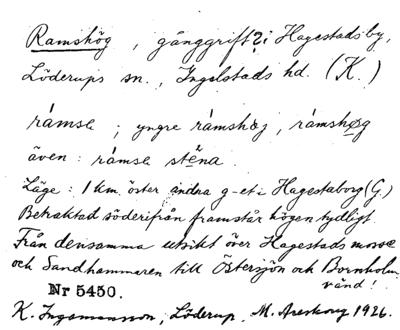 Ramshög, gånggrift? i Hagestads by,
Löderups sn., Ingelstads hd. (K.)
rámsę; yngre rámshøʒ, rámshøg
även: rámsę stę̄na.
Läge: 1 km. öster g-et i Hagestaborg (G.)
Betraktad söderifrån framstår högen tydligt.
Från densamma utsikt över Hagestads mosse
och Sandhammaren till Östersjön och Bornholm
Nr 5450.
K. Ingemansson, Löderup. M. Areskog 1926.